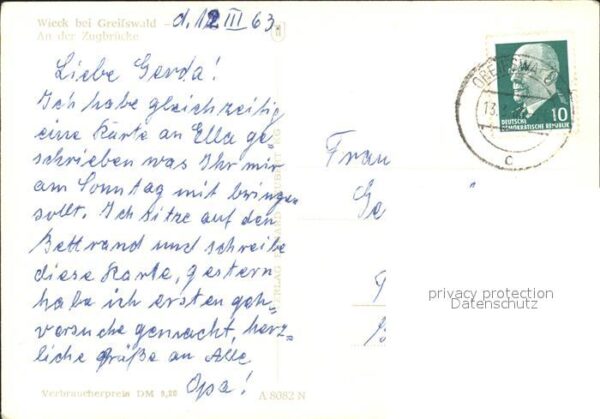 Wieck bei Greifswald –
An der Zugbrücke
d. 12 III 63.
Liebe Gerda!
Ich habe gleichzeitig
eine Karte an Ella ge-
schrieben was Ihr mir
am Sonntag mit bringen
sollt. Ich sitze auf den
Bettrand und schreibe
diese Karte, gestern
habe ich ersten geh-
versuche gemacht, herz-
liche Grüße an Alle
Opa!
Verbraucherpreis DM 0,20
A 8082 N
VERLAG
Frau
Ge
13.
c
DEUTSCHE
DEMOKRATISCHE REPUBLIK
10
privacy protection
Datenschutz